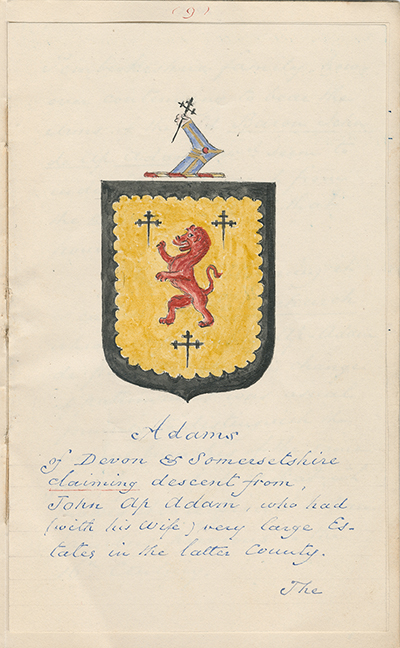 (9)
Adams
of Devon & Somersetshire
claiming descent from,
John Ap Adam, who had
(with his Wife) very large Es-
tates in the latter County.
The